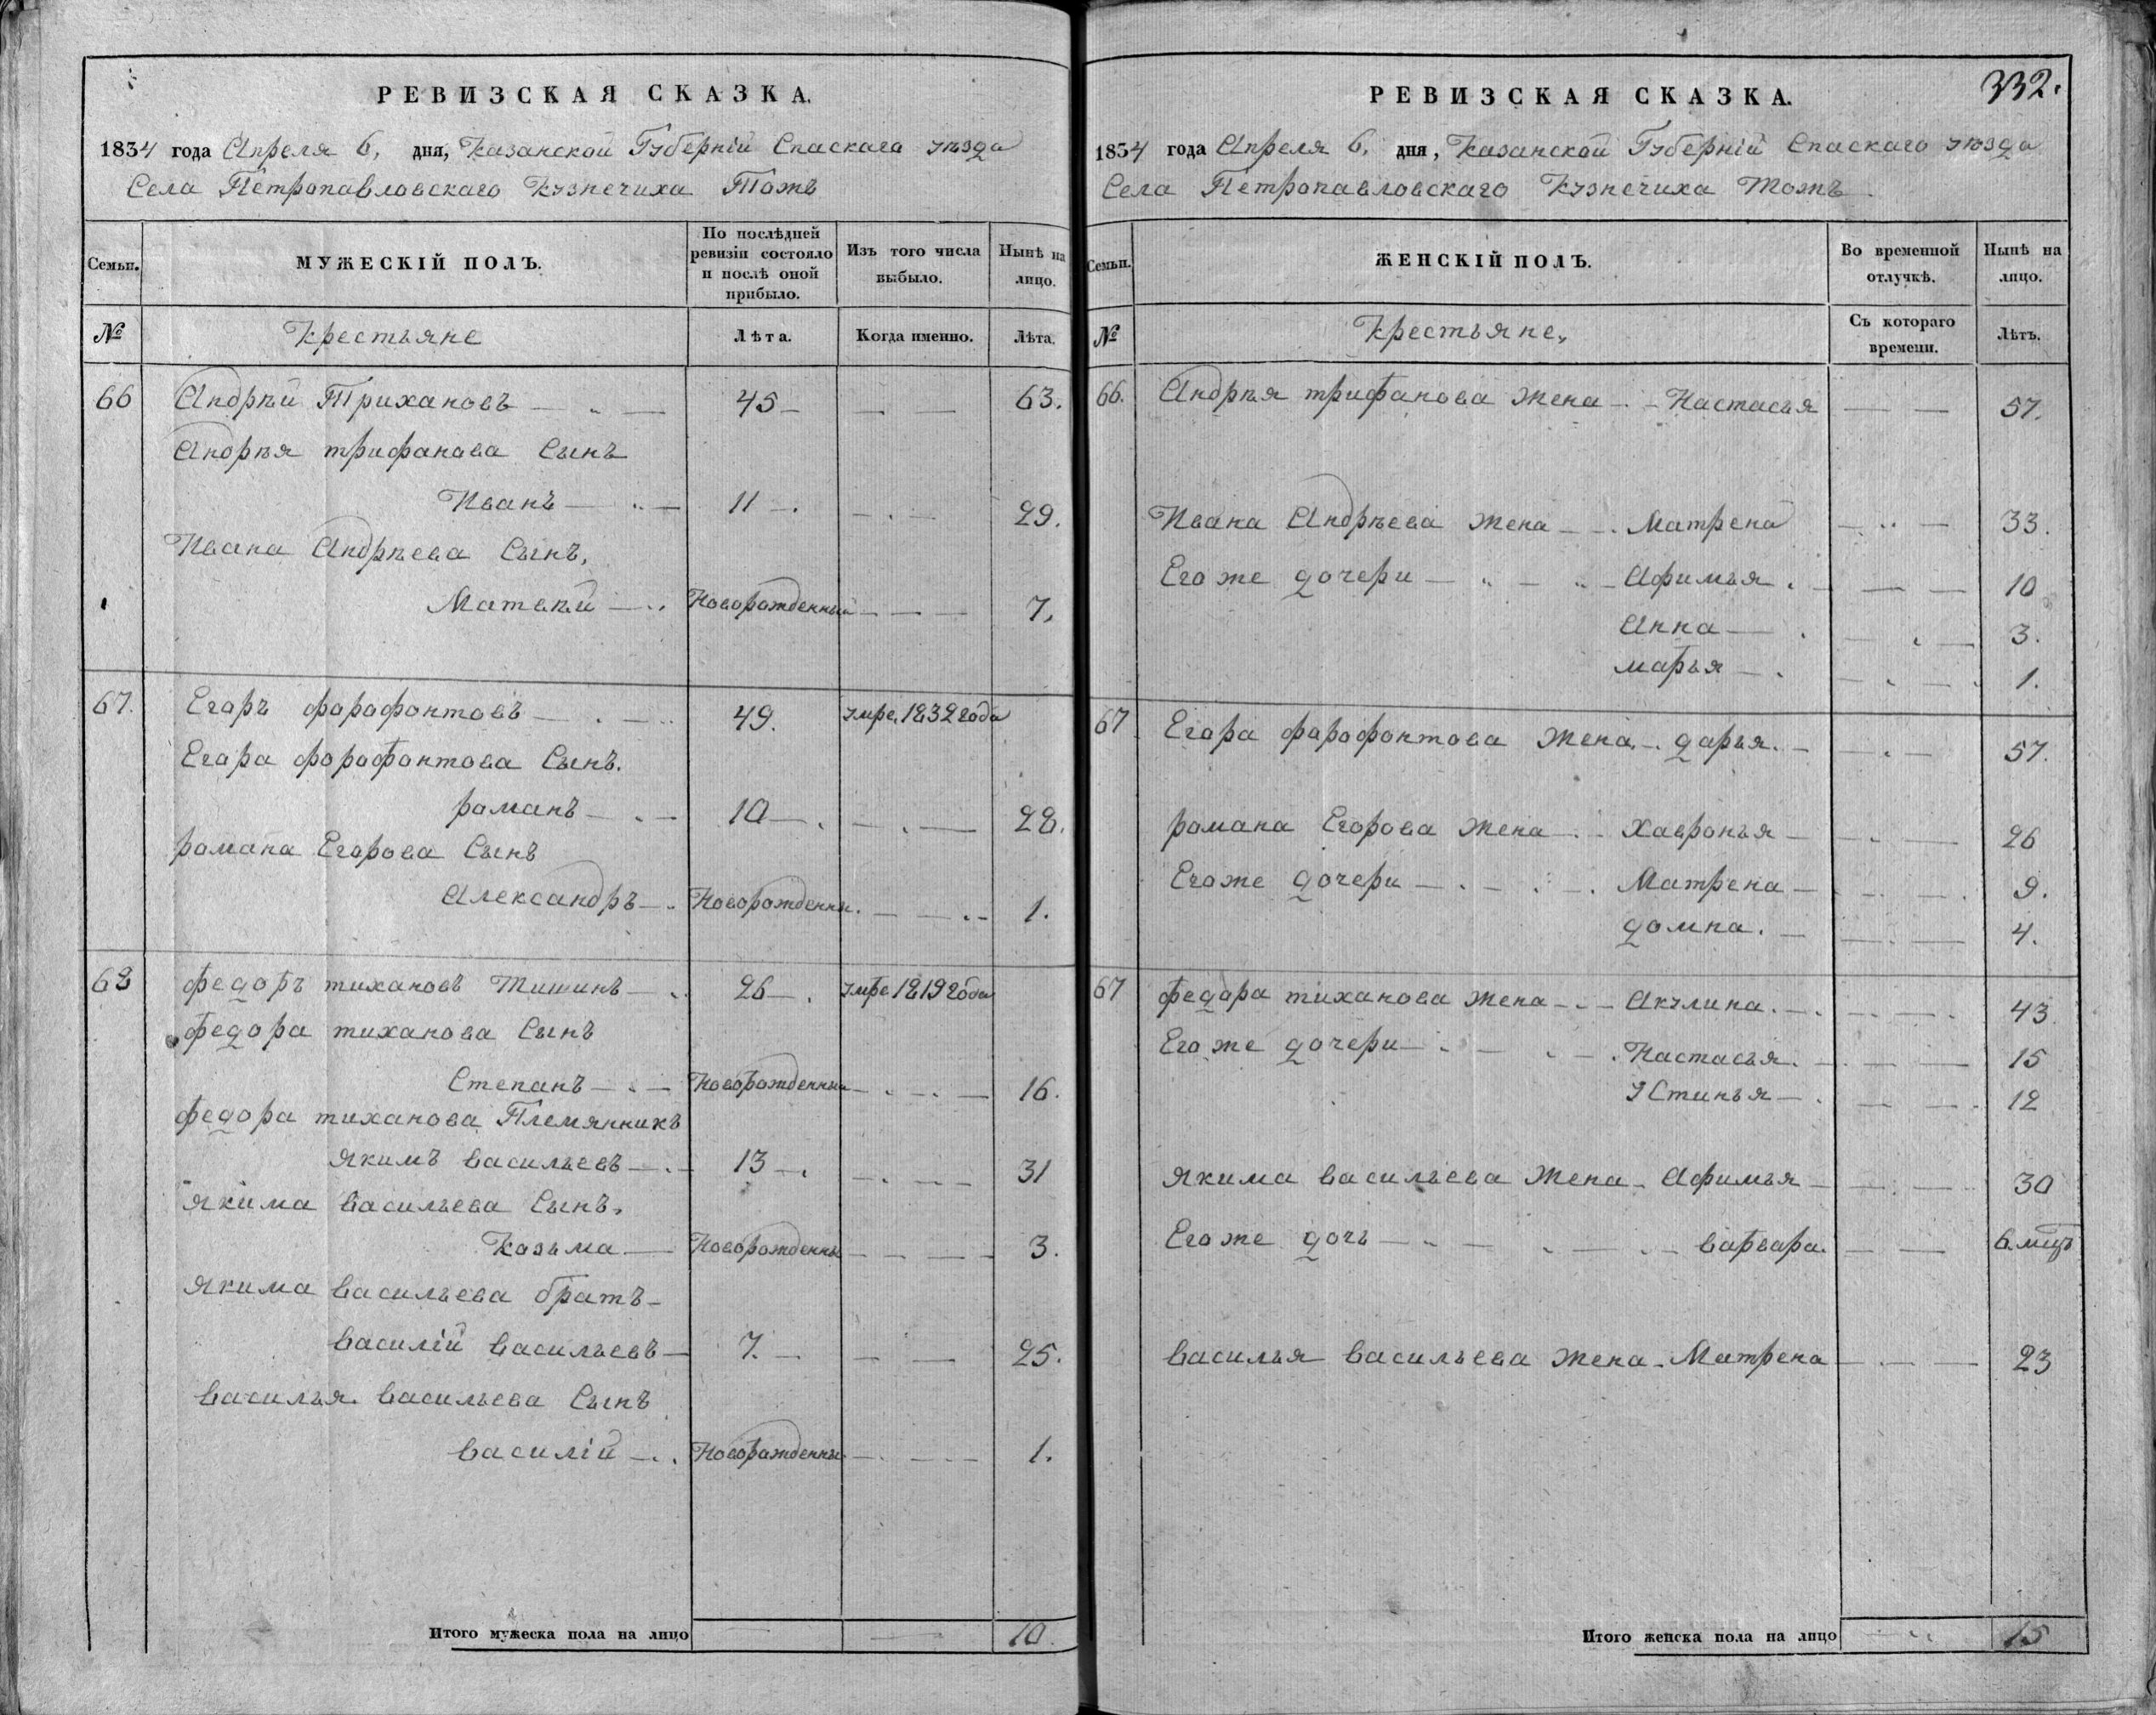 РЕВИЗСКАЯ СКАЗКА.
1834 года Апреля 6, дня, Казанской Губернiй Спаскаго уѣзда
Села Петропавловскаго Кузнечиха Тожъ
Семьи. МУЖЕСКІЙ ПОЛЪ. По послѣдней ревизіи состояло и послѣ оной прибыло. Изъ того числа выбыло. Нынѣ на лицо.
№ Крестьяне Лѣта. Когда именно. Лѣта.
66 Андрѣй Трихановъ 45 63.
Андрѣя трифанова Сынъ
Иванъ 11 29.
Ивана Андрѣева Сынъ,
Матвѣй Новорожденный 7,
67. Егоръ фарафонтовъ 49. умре, 1832 года
Егара фарафонтова Сынъ.
романъ 10 28.
романа Егарова Сынъ
Александръ Новорожденны. 1.
68 федоръ тихановъ Тишинъ 26 умре 1819 года
федора тиханова Сынъ
Степанъ Новорожденный 16.
федора тиханова Племянникъ
якимъ васильевъ 13 31
якима васильева Сынъ,
Казьма Новорожденны 3.
якима васильева братъ
василiй васильевъ 7. 25.
василья васильева Сынъ
василiй Новорожденны. 1.
Итого мужеска пола на лицо 10.
332.
РЕВИЗСКАЯ СКАЗКА.
1834 года Апреля 6, дня, Казанской Губернiй Спаскаго уѣзда
Села Петропавловскаго Кузнечиха Тожъ
Семьи. ЖЕНСКІЙ ПОЛЪ. Во временной отлучкѣ. Нынѣ на лицо.
№ Крестьяне, Съ котораго времени. Лѣтъ.
66. Андрѣя трифанова жена Настасья 57.
Ивана Андрѣева жена Матрена 33.
Его же дочери Афимья 10
Анна 3.
марья 1.
67 Егора фарофонтова жена дарья. 57.
романа Егорова жена Хавронья 26
Его же дочери Матрена 9.
домна. 4.
67 федора тиханова жена Акулина. 43
Его же дочери Настасья. 15
Устинья 12
якима васильева жена Афимья 30
Его же дочь варвара. 6. мцъ
василья васильева жена Матрена 23
Итого женска пола на лицо 15